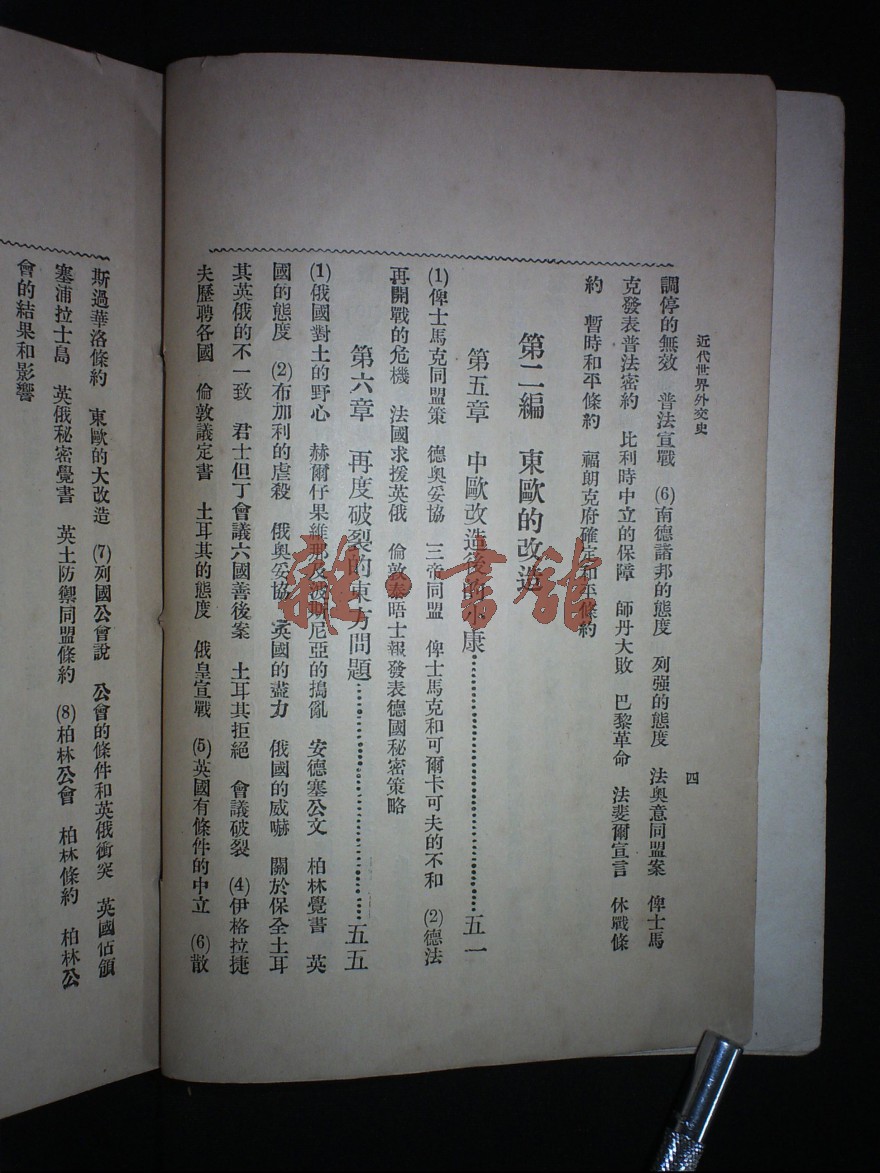 近代世界外交史
四
調停的無效　普法宣戰　(6)南德諸邦的態度　列强的態度　法奧意同盟案　俾士馬
克發表普法密約　比利時中立的保障　師丹大敗　巴黎革命　法斐爾宣言　休戰條
約　暫時和平條約　福朗克府確定和平條約
第二編　東歐的改造
第五章　中歐改造後的小康……五一
(1)俾士馬克同盟策　德奧妥協　三帝同盟　俾士馬克和可爾卡可夫的不和　(2)德法
再開戰的危機　法國求援英俄　倫敦泰晤士報發表德國秘密策略
第六章　再度破裂的東方問題……五五
(1)俄國對土的野心　赫爾仔果維那及波斯尼亞的搗亂　安德塞公文　柏林覺書　英
國的態度　(2)布加利的虐殺　俄奧妥協　英國的盡力　俄國的威嚇　關於保全土耳
其英俄的不一致　君士但丁會議六國善後案　土耳其拒絕　會議破裂　(4)伊格拉捷
夫歷聘各國　倫敦議定書　土耳其的態度　俄皇宣戰　(5)英國有條件的中立　(6)散
斯過華洛條約　東歐的大改造　(7)列國公會說　公會的條件和英俄衝突　英國佔領
塞浦拉士島　英俄秘密覺書　英土防禦同盟條約　(8)柏林公會　柏林條約　柏林公
會的結果和影響
雜·書館